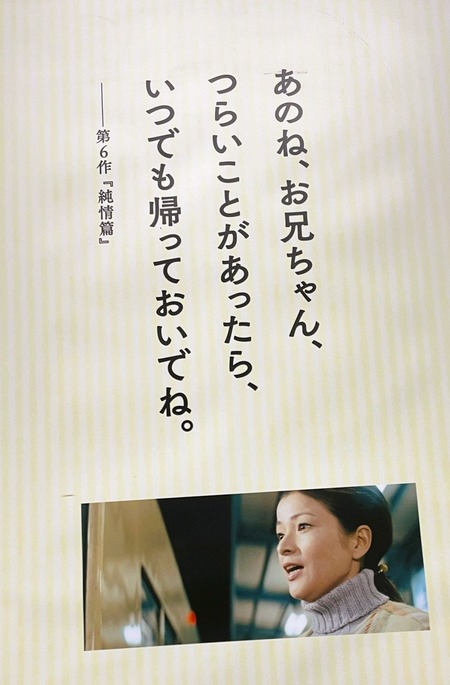 あのね、お兄ちゃん、
つらいことがあったら、
いつでも帰っておいでね。
──第6作『純情篇』